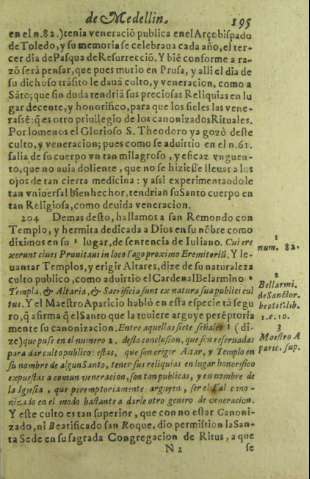 de Medellin. 195
en el n. 82.) tenia veneraciō publica en el Arçobispado
de Toledo, y su memoria se celebraua cada año, el ter-
cer dia de Pasqua de Resurrecciō. Y biē conforme a ra-
zō serà pensar, que pues murio en Prusa, y alli el dia de
su dichoso trāsito le dauā culto, y veneracion, como a
Sāto; que sin duda tendriā sus preciosas Reliquias en lu
gar decente, y honorifico, para que los fieles las vene-
rasē: q̄ es otro priuilegio de los canonizados Rituales.
Por lo menos el Glorioso S. Theodoro ya gozò deste
culto, y veneracion; pues como se aduirtio en el n. 61.
salia de su cuerpo vn tan milagroso, y eficaz vnguen-
to, que no auia doliente, que no se hizieße lleuar a los
ojos de tan cierta medicina: y assi experimentandole
tan vniuersal bienhechor, tendrian su Santo cuerpo en
tan Religiosa, como deuida veneracion.
204 Demas desto, hallamos a san Remondo con
Templo, y hermita dedicada a Dios en su nōbre como
diximos en su ¹ lugar, de sentencia de Iuliano. Cui ere
xerunt ciues Prusitani in loco Vago proximo Eremiteriū. Y le-
uantar Templos, y erigir Altares, dize de su naturaleza
culto publico, como aduirtio el Cardenal Belarmino ²
Templa, & Altaria, & Sacrificia sunt ex natura sua publici cul
tus. Y el Maestro Aparicio hablò en esta especie tā segu
ro, q̄ afirma q̄ el Santo que la tuuiere arguye perēptoria
mente su canonizacion. Entre aquellas siete señales ³ (di-
ze) que puse en el numero 2. desta conclusion, que son reseruadas
para dar culto publico: estas, que son erigir Altar, y Templo en
su nombre de algun Santo, tener sus reliquias en lugar honorifico
expuestas a comun veneracion, son tan publicas, y en nombre de
la Iglesia, que peremptoriamente arguyen, ser el tal cano-
nizado en el modo bastante a darle otro genero de veneracion.
Y este culto es tan superior, que con no estar Canoni-
zado, ni Beatificado san Roque, dio permission la San-
ta Sede en su sagrada Congregacion de Ritus, a que
N 2 se
1
num. 82.
2
Bellarmi.
de Sanctor.
beatit. lib.
1. c. 10.
3
Maestro A
paric. sup.